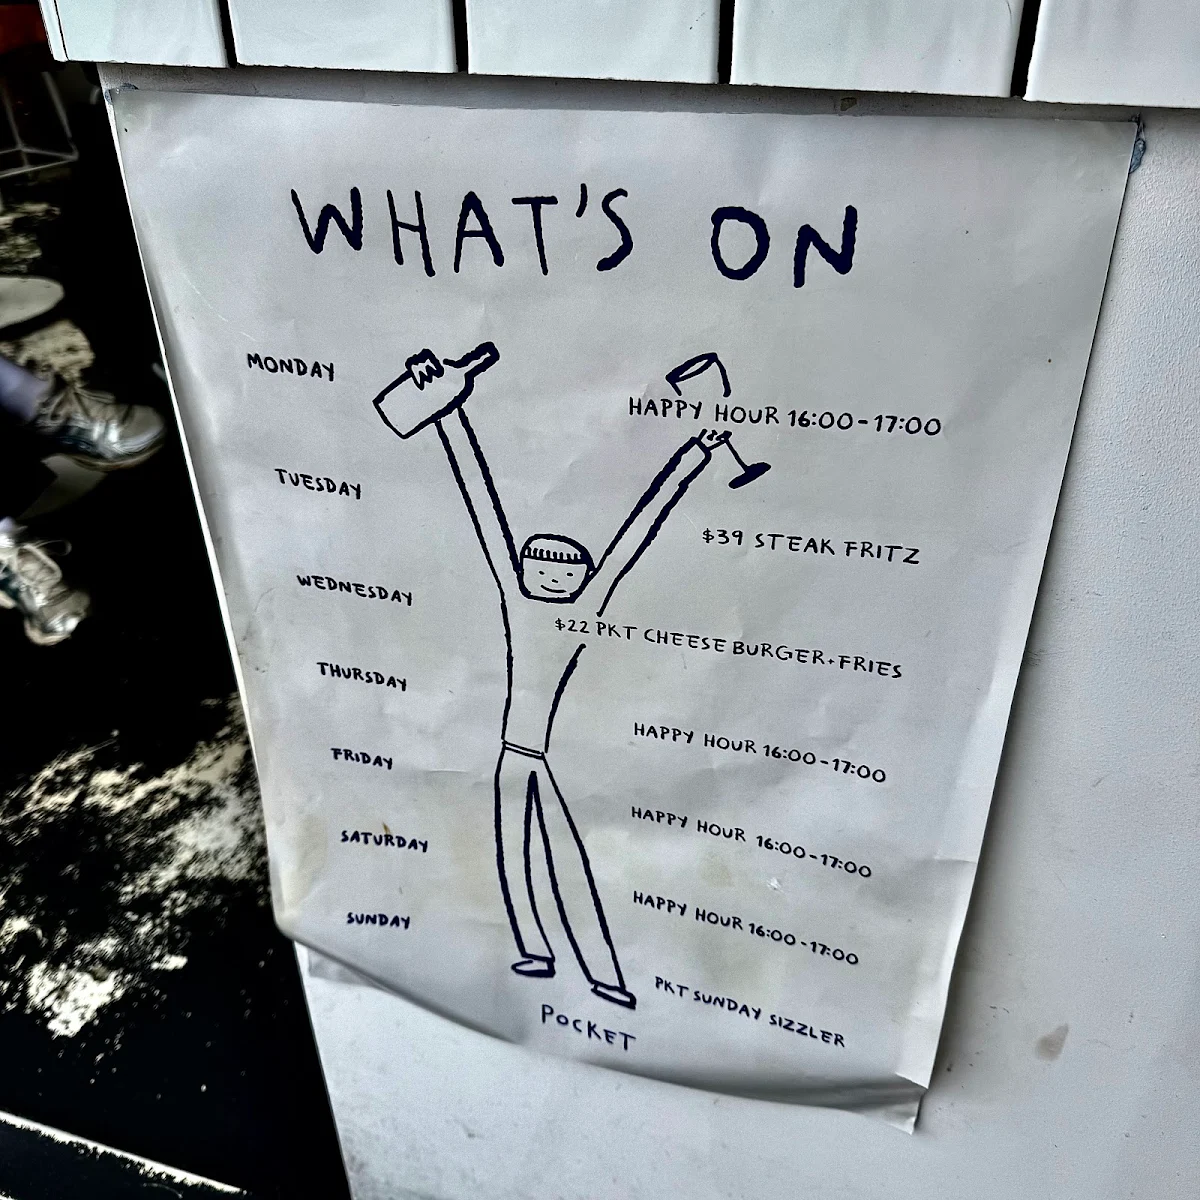 WHAT'S ON
MONDAY HAPPY HOUR 16:00-17:00
TUESDAY $39 STEAK FRITZ
WEDNESDAY $22 PKT CHEESE BURGER+FRIES
THURSDAY HAPPY HOUR 16:00-17:00
FRIDAY HAPPY HOUR 16:00-17:00
SATURDAY HAPPY HOUR 16:00-17:00
SUNDAY PKT SUNDAY SIZZLER
POCKET